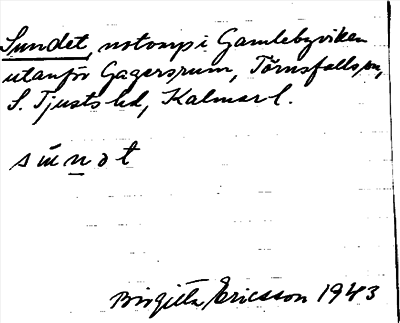 Sundet, notvarp i Gamlebyviken
utanför Gagersrum, Törnsfalls sn,
S. Tjusts hd, Kalmar l.
sundt
Birgitta Ericsson 1943